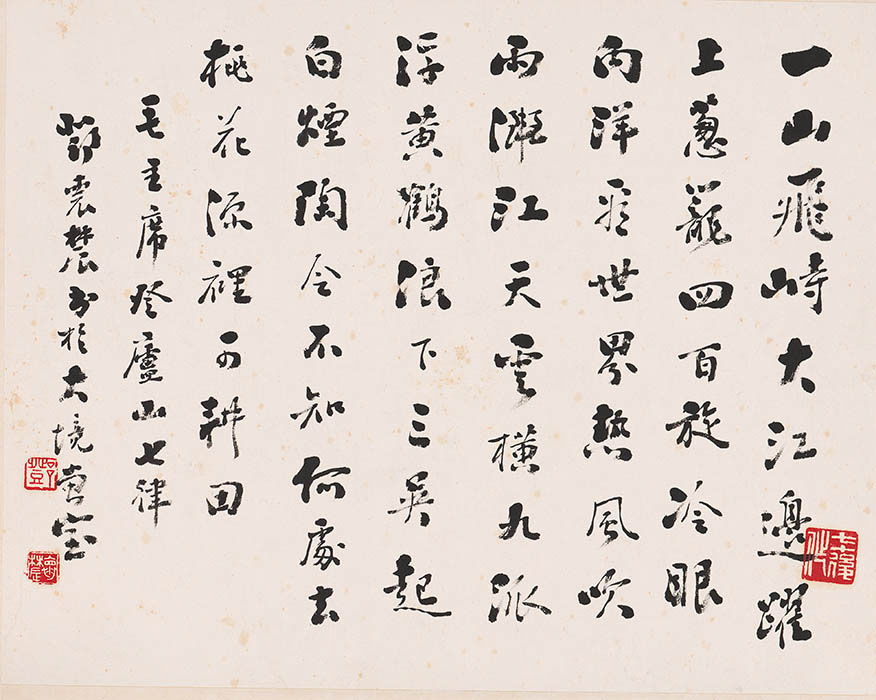 一山飛峙大江邊躍
上蔥蘢四百旋冷眼
向洋看世界熱風吹
雨灑江天雲橫九派
浮黃鶴浪下三吳起
白煙陶令不知何處去
桃花源裡可耕田
毛主席登廬山七律
鄧震農書於大境堂室